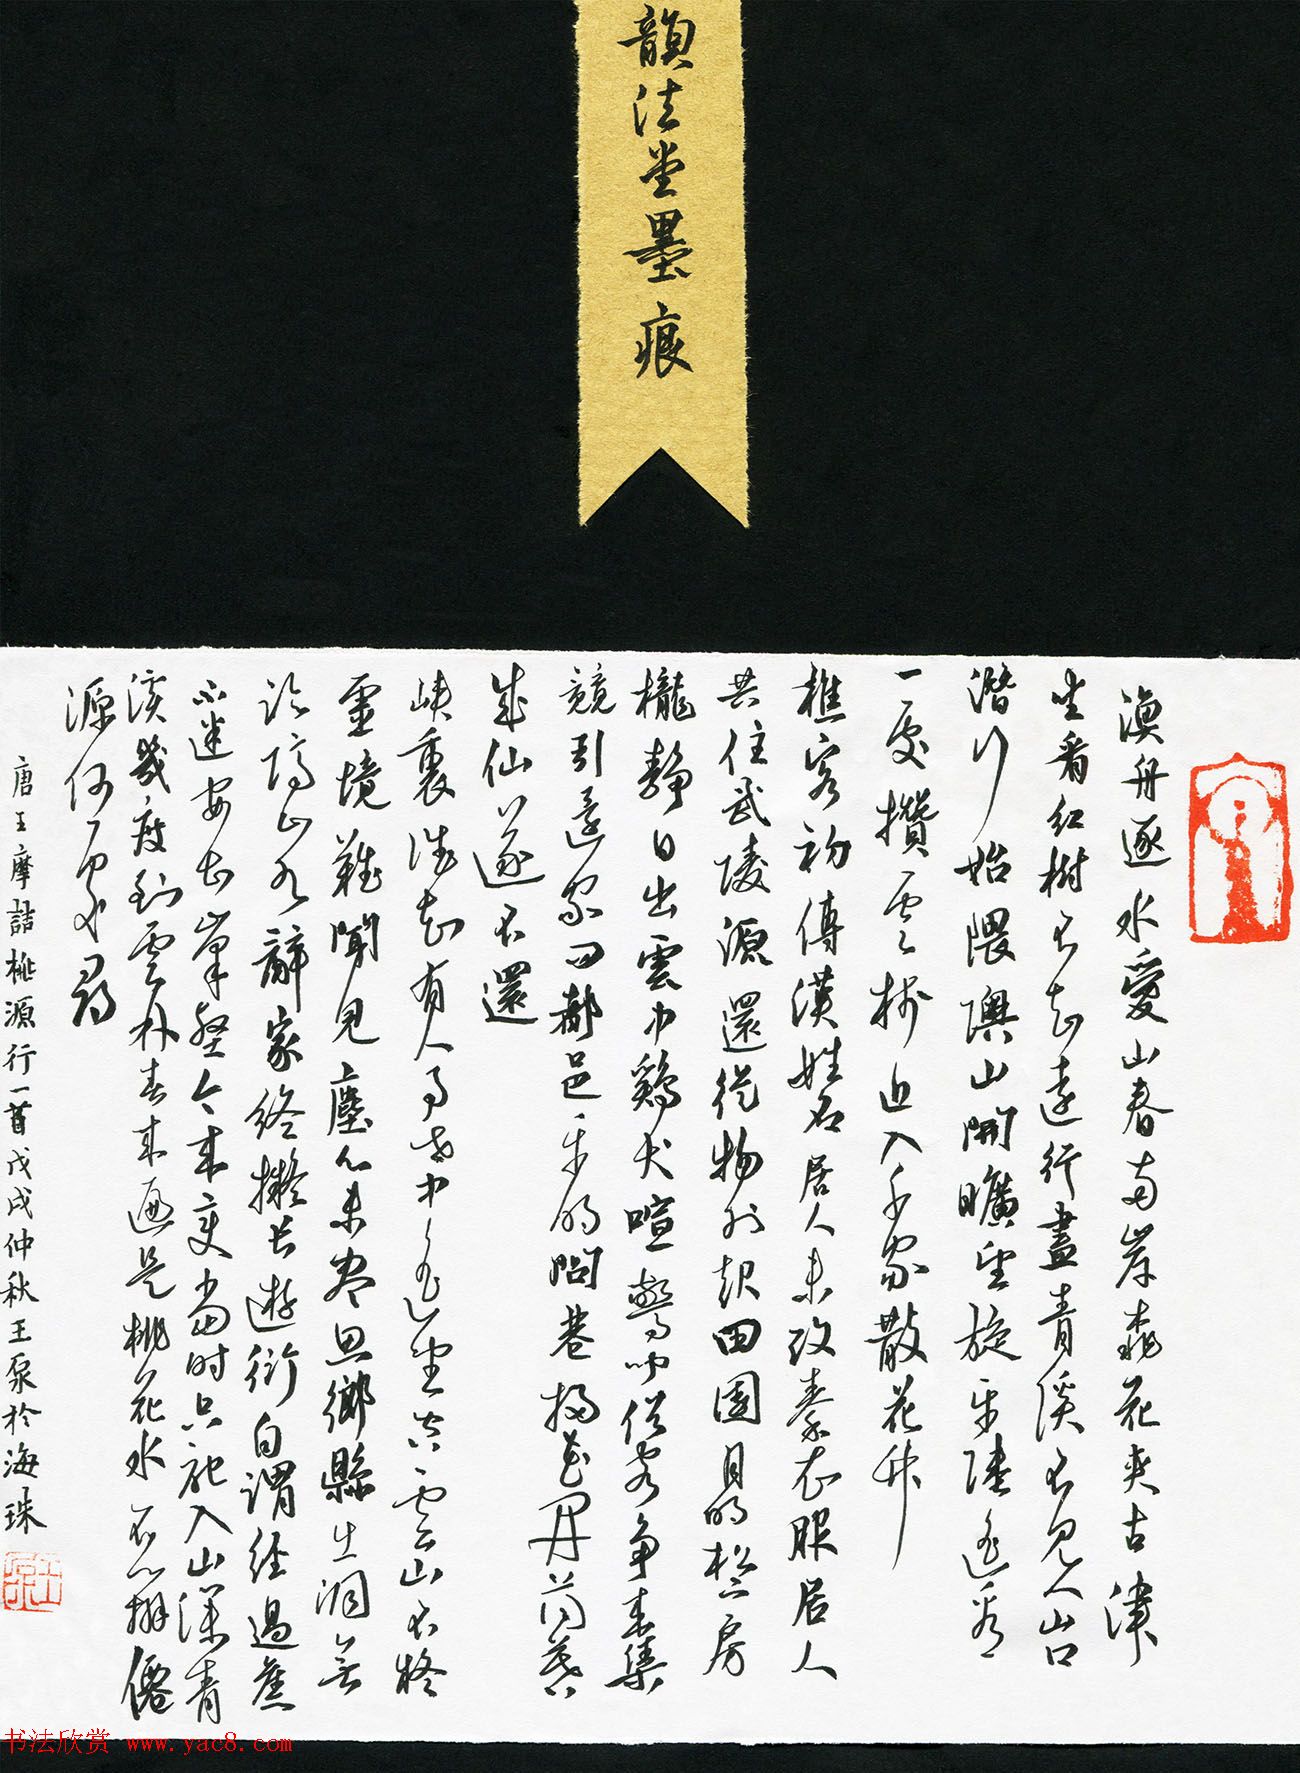 韻法堂墨痕
漁舟逐水愛山春两岸桃花夾古津
坐看紅樹不知遠行盡青溪不見人山口
潛行始隈隩山開曠望旋平陸遥看
一處攢雲樹近入千家散花竹
樵客初傳漢姓名居人未改秦衣服居人
共住武陵源還從物外起田園月明松下房
櫳静日出雲中鷄犬喧驚聞俗客争来集
競引還家問都邑平明閭巷掃花開薄暮
成仙遂不還
峡裏誰知有人事世中遥望空雲山不疑
靈境難聞見塵心未盡思鄉縣出洞無
論隔山水辭家終擬長遊衍自謂経過舊
不迷安知峯壑今来变当時只記入山深青
溪幾度到雲林春来遍是桃花水不辨僊
源何處尋
唐王摩詰桃源行一首戊戌仲秋王泉於海珠
书法欣赏 www.yac8.com